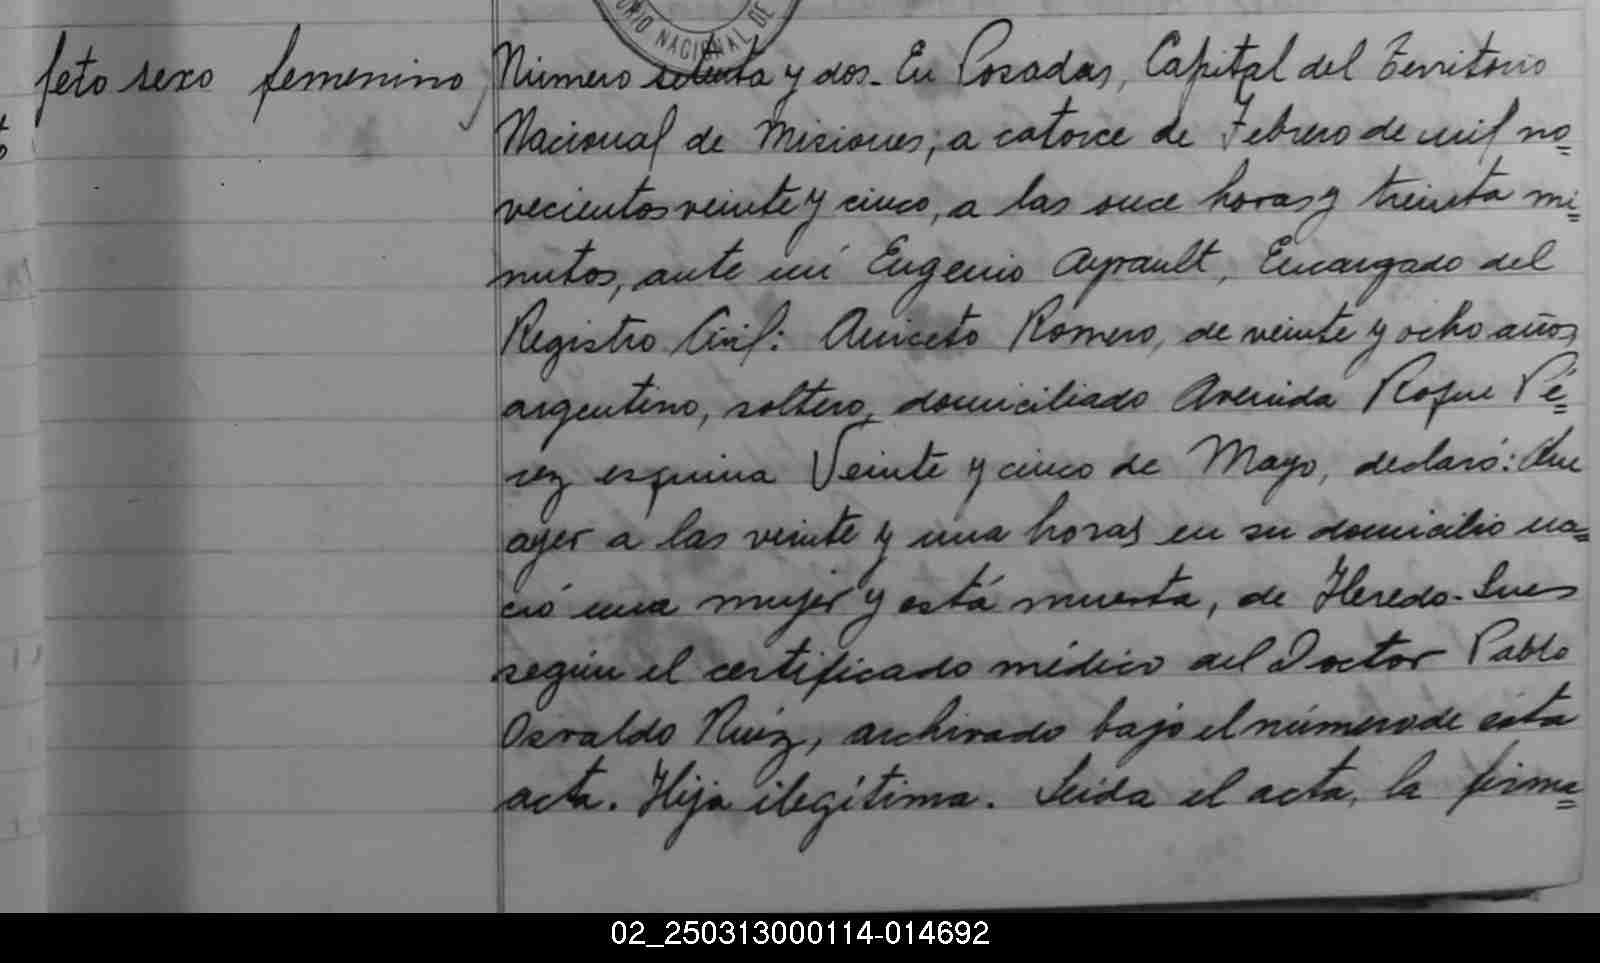 ORIO NACIONAL DE
feto sexo femenino,
Número setenta y dos_ En Posadas, Capital del Territorio
Nacional de Misiones, a catorce de Febrero de mil no=
vecientos veinte y cinco, a las once horas y treinta mi=
nutos, ante mí Eugenio Ayrault, Encargado del
Registro Civil: Aniceto Romero, de veinte y ocho años,
argentino, soltero, domiciliado Avenida Roque Pé=
rez esquina Veinte y cinco de Mayo, declaró: Que
ayer a las veinte y una horas en su domicilio na=
ció una mujer y está muerta, de Heredo-Lues
según el certificado médico del Doctor Pablo
Osvaldo Ruíz, archivado bajo el número de ésta
acta. Hija ilegítima. Leída el acta, la firma=
02_250313000114-014692